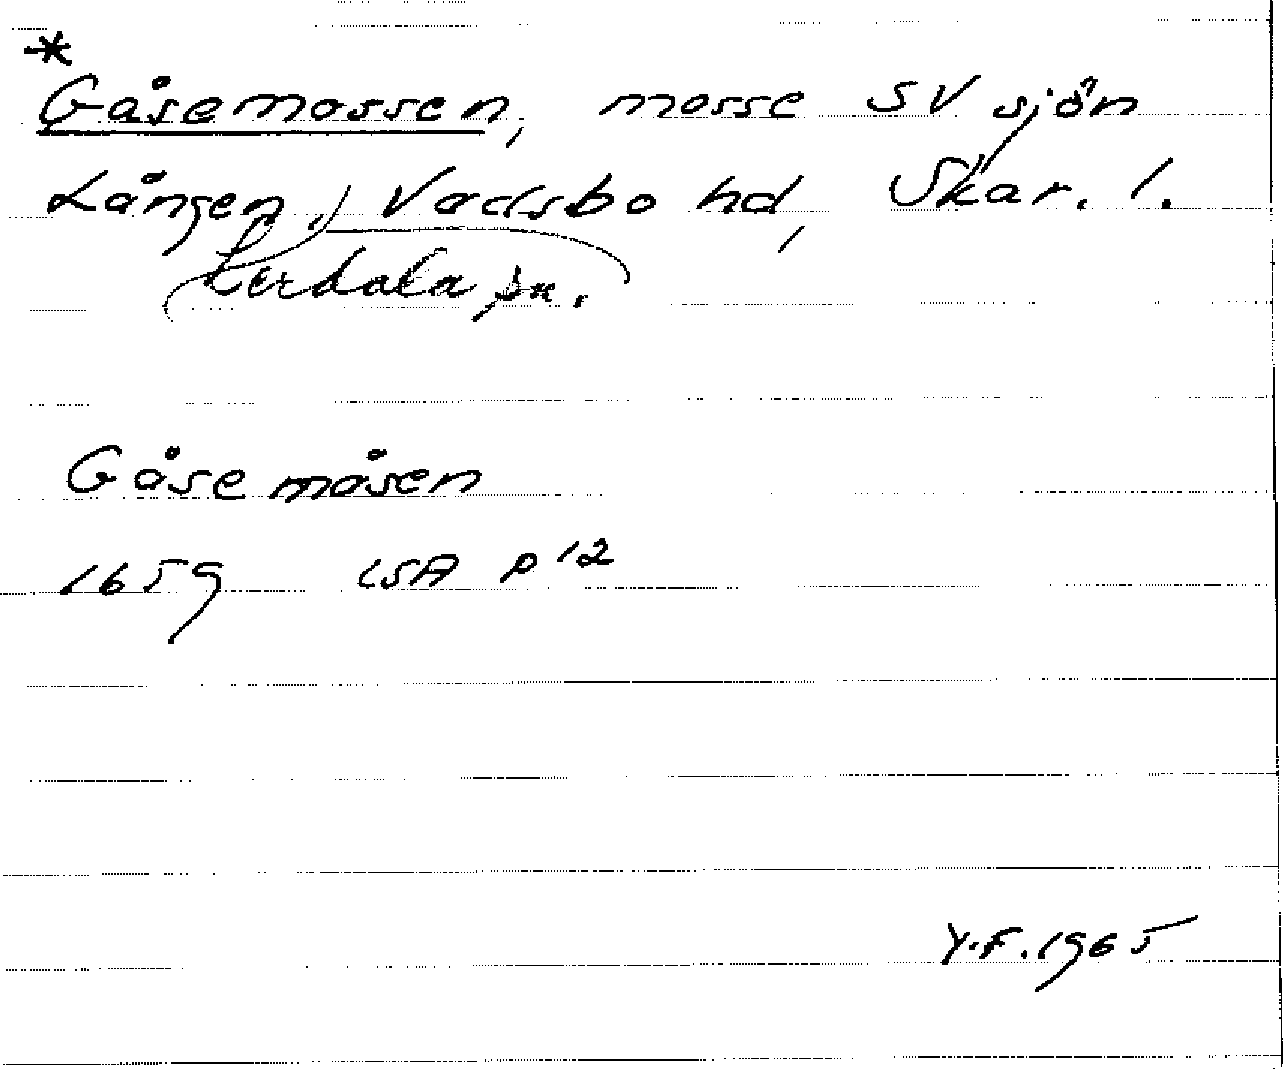 *
Gåsemossen, mosse SV sjön
Lången, Vadsbo hd, Skar. l.
Lerdala sn.
Gåsemåsen
1659 LSA P 12
Y.F. 1965